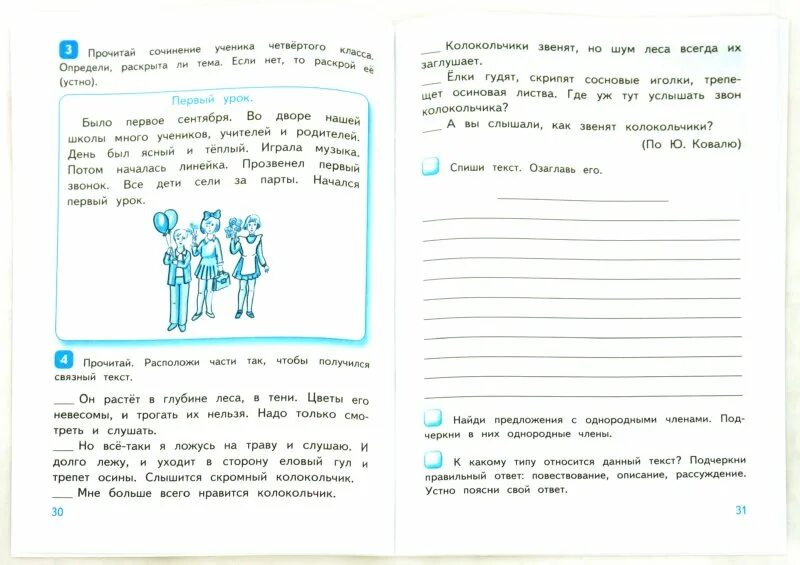 3 Прочитай сочинение ученика четвёртого класса.
Определи, раскрыта ли тема. Если нет, то раскрой её
(устно).
Первый урок.
Было первое сентября. Во дворе нашей
школы много учеников, учителей и родителей.
День был ясный и тёплый. Играла музыка.
Потом началась линейка. Прозвенел первый
звонок. Все дети сели за парты. Начался
первый урок.
4 Прочитай. Расположи части так, чтобы получился
связный текст.
___ Он растёт в глубине леса, в тени. Цветы его
невесомы, и трогать их нельзя. Надо только смо-
треть и слушать.
___ Но всё-таки я ложусь на траву и слушаю. И
долго лежу, и уходит в сторону еловый гул и
трепет осины. Слышится скромный колокольчик.
___ Мне больше всего нравится колокольчик.
30
___ Колокольчики звенят, но шум леса всегда их
заглушает.
___ Ёлки гудят, скрипят сосновые иголки, трепе-
щет осиновая листва. Где уж тут услышать звон
колокольчика?
___ А вы слышали, как звенят колокольчики?
(По Ю. Ковалю)
Спиши текст. Озаглавь его.
Найди предложения с однородными членами. Под-
черкни в них однородные члены.
К какому типу относится данный текст? Подчеркни
правильный ответ: повествование, описание, рассуждение.
Устно поясни свой ответ.
31